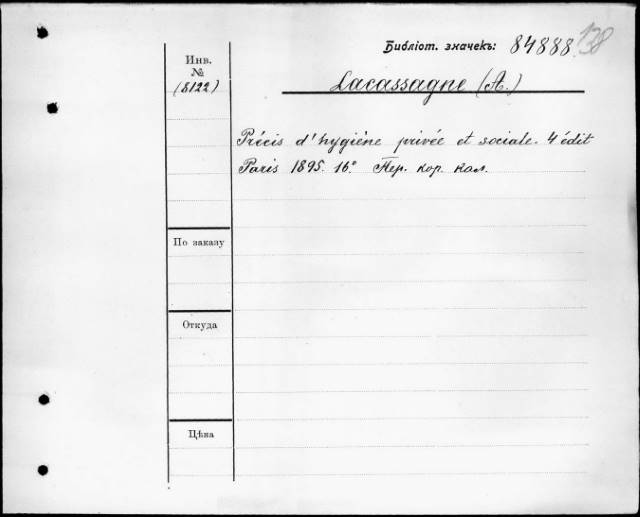 Библіот. значекъ: 84888
138
Инв.
№
(8122)
Lacassagne (A.)
Précis d'hygiène privée et sociale. 4 édit
Paris 1895. 16° Пер. кор. кол.
По заказу
Откуда
Цѣна